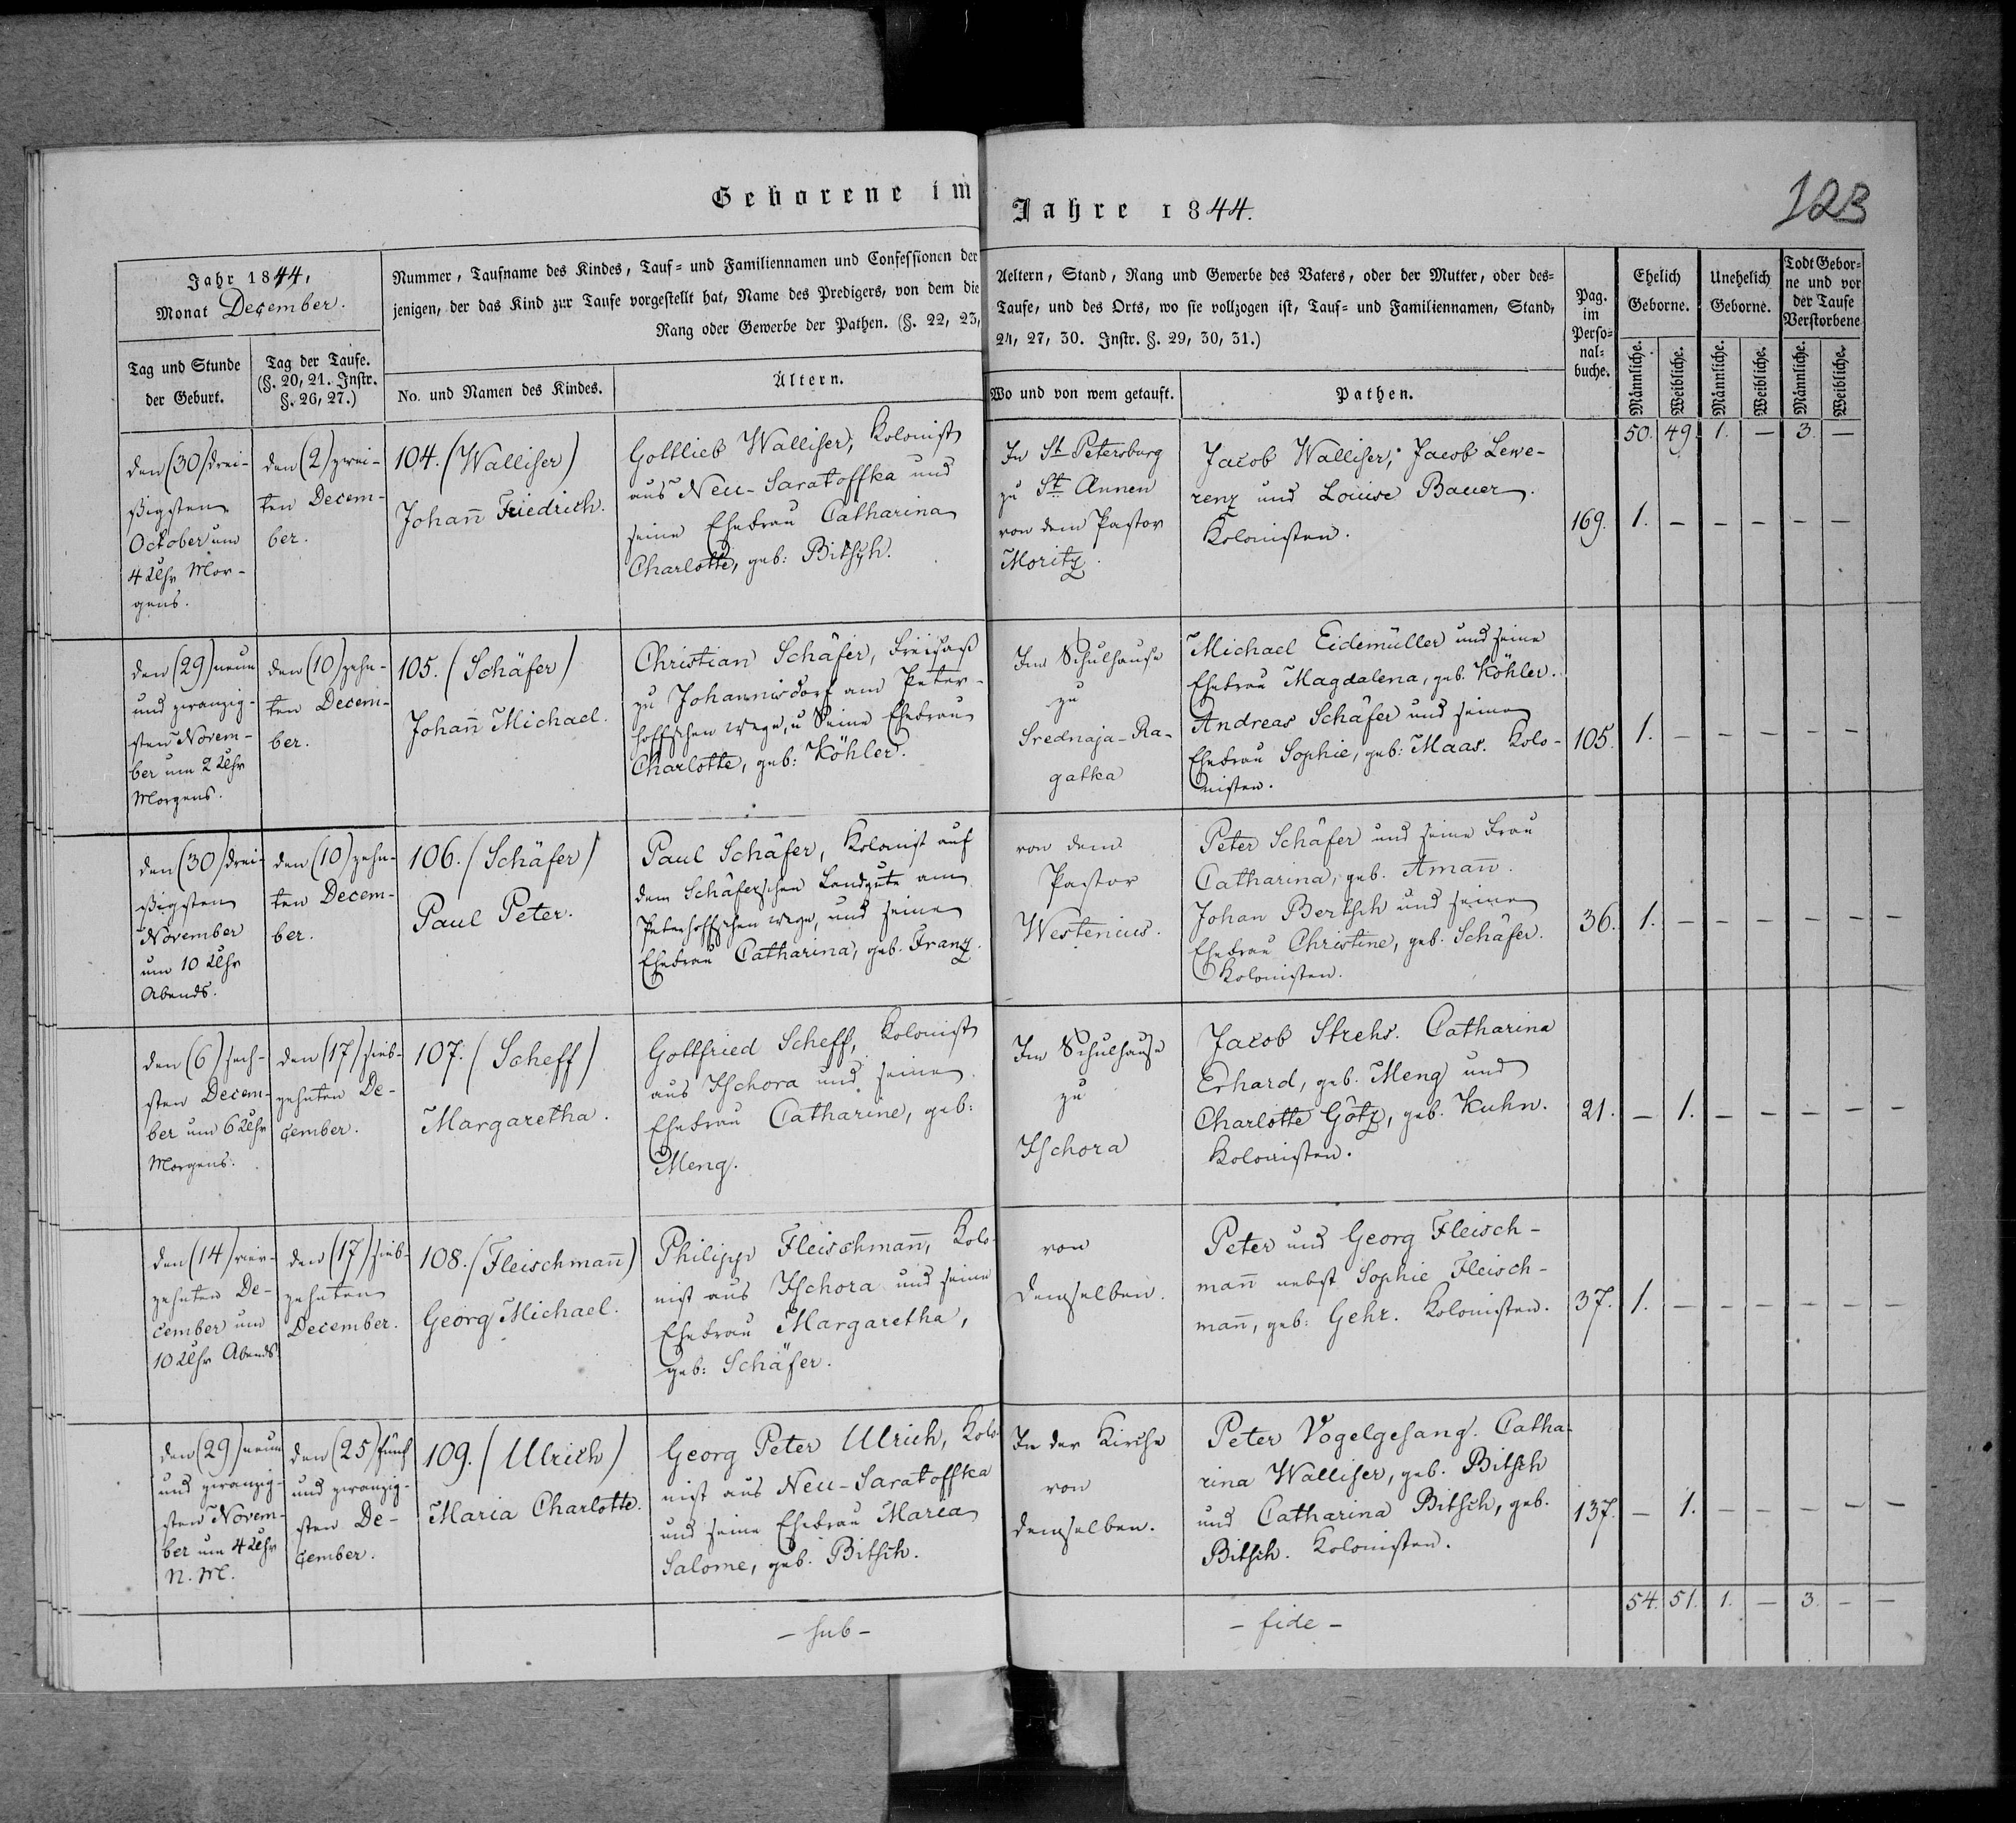 Geborene im Jahre 1844.
123
Jahr 1844,
Monat December.
Nummer, Taufname des Kindes, Tauf- und Familiennamen und Confessionen der
jenigen, der das Kind zur Taufe vorgestellt hat, Name des Predigers, von dem die
Rang oder Gewerbe der Pathen. (§. 22, 23,
Aeltern, Stand, Rang und Gewerbe des Vaters, oder der Mutter, oder des-
Taufe, und des Orts, wo sie vollzogen ist, Tauf- und Familiennamen, Stand,
24, 27, 30. Instr. §. 29, 30, 31.)
Pag.
im
Perso-
nal-
buche.
Ehelich
Geborne.
Unehelich
Geborne.
Todt Gebor-
ne und vor
der Taufe
Verstorbene
Tag und Stunde
der Geburt.
Tag der Taufe.
(§. 20, 21. Instr.
§. 26, 27.)
No. und Namen des Kindes.
Ältern.
Wo und von wem getauft.
Pathen.
Männliche.
Weibliche.
Männliche.
Weibliche.
Männliche.
Weibliche.
50. 49. 1. — 3. —
den (30) drei-
ßigsten
October um
4 Uhr Mor-
gens.
den (2) zwei-
ten Decem-
ber.
104. (Walliser)
Johañ Friedrich.
Gottlieb Walliser, Kolonist
aus Neu-Saratoffka und
seine Ehefrau Catharina
Charlotte, geb: Bitsch.
In St. Petersburg
zu St. Annen
von dem Pastor
Moritz.
Jacob Walliser, Jacob Lewe-
renz und Louise Bauer.
Kolonisten.
169. 1. — — — — —
den (29) neun
und zwanzig-
sten Novem-
ber um 2 Uhr
Morgens.
den (10) zehn-
ten Decem-
ber.
105. (Schäfer)
Johañ Michael.
Christian Schäfer, Freisaß
zu Johannisdorf am Peter-
hoffschen Wege, u seine Ehefrau
Charlotte, geb: Köhler.
Im Schulhause
zu
Srednaja-Ra-
gatka
Michael Eidemüller und seine
Ehefrau Magdalena, geb. Köhler.
Andreas Schäfer und seine
Ehefrau Sophie, geb: Maas. Kolo-
nisten.
105. 1. — — — — —
den (30) drei-
ßigsten
November
um 10 Uhr
Abends.
den (10) zehn-
ten Decem-
ber.
106. (Schäfer)
Paul Peter.
Paul Schäfer, Kolonist auf
dem Schäferschen Landgute am
Peterhoffschen Wege, und seine
Ehefrau Catharina, geb. Franz.
von dem
Pastor
Westenius.
Peter Schäfer und seine Frau
Catharina, geb. Amañ.
Johan Bertsch und seine
Ehefrau Christine, geb. Schäfer.
Kolonisten.
36. 1. — — — — — —
den (6) sech-
sten Decem-
ber um 6 Uhr
Morgens.
den (17) sieb-
zehnten De-
cember.
107. (Scheff)
Margaretha.
Gottfried Scheff, Kolonist
aus Ischora und seine
Ehefrau Catharine, geb:
Meng.
Im Schulhause
zu
Ischora
Jacob Strehs. Catharina
Erhard, geb. Meng und
Charlotte Götz, geb. Kuhn.
Kolonisten.
21. — 1. — — — — —
den (14) vier-
zehnten De-
cember um
10 Uhr Abends.
den (17) sieb-
zehnten
December.
108. (Fleischmañ)
Georg Michael.
Philipp Fleischmañ, Kolo-
nist aus Ischora und seine
Ehefrau Margaretha,
geb: Schäfer.
von
demselben.
Peter und Georg Fleisch-
mañ nebst Sophie Fleisch-
mañ, geb: Gehr. Kolonisten.
37. 1. — — — — — —
den (29) neun
und zwanzig-
sten Novem-
ber um 4 Uhr
N. M.
den (25) fünf
und zwanzig-
sten De-
cember.
109. (Ulrich)
Maria Charlotte.
Georg Peter Ulrich, Kolo-
nist aus Neu-Saratoffka
und seine Ehefrau Maria
Salome, geb. Bitsch.
In der Kirche
von
demselben.
Peter Vogelgesang. Catha-
rina Walliser, geb. Bitsch
und Catharina Bitsch, geb.
Bitsch. Kolonisten.
137. — 1. — — — — —
54. 51. 1. — 3. — —
— sub —
— fide —